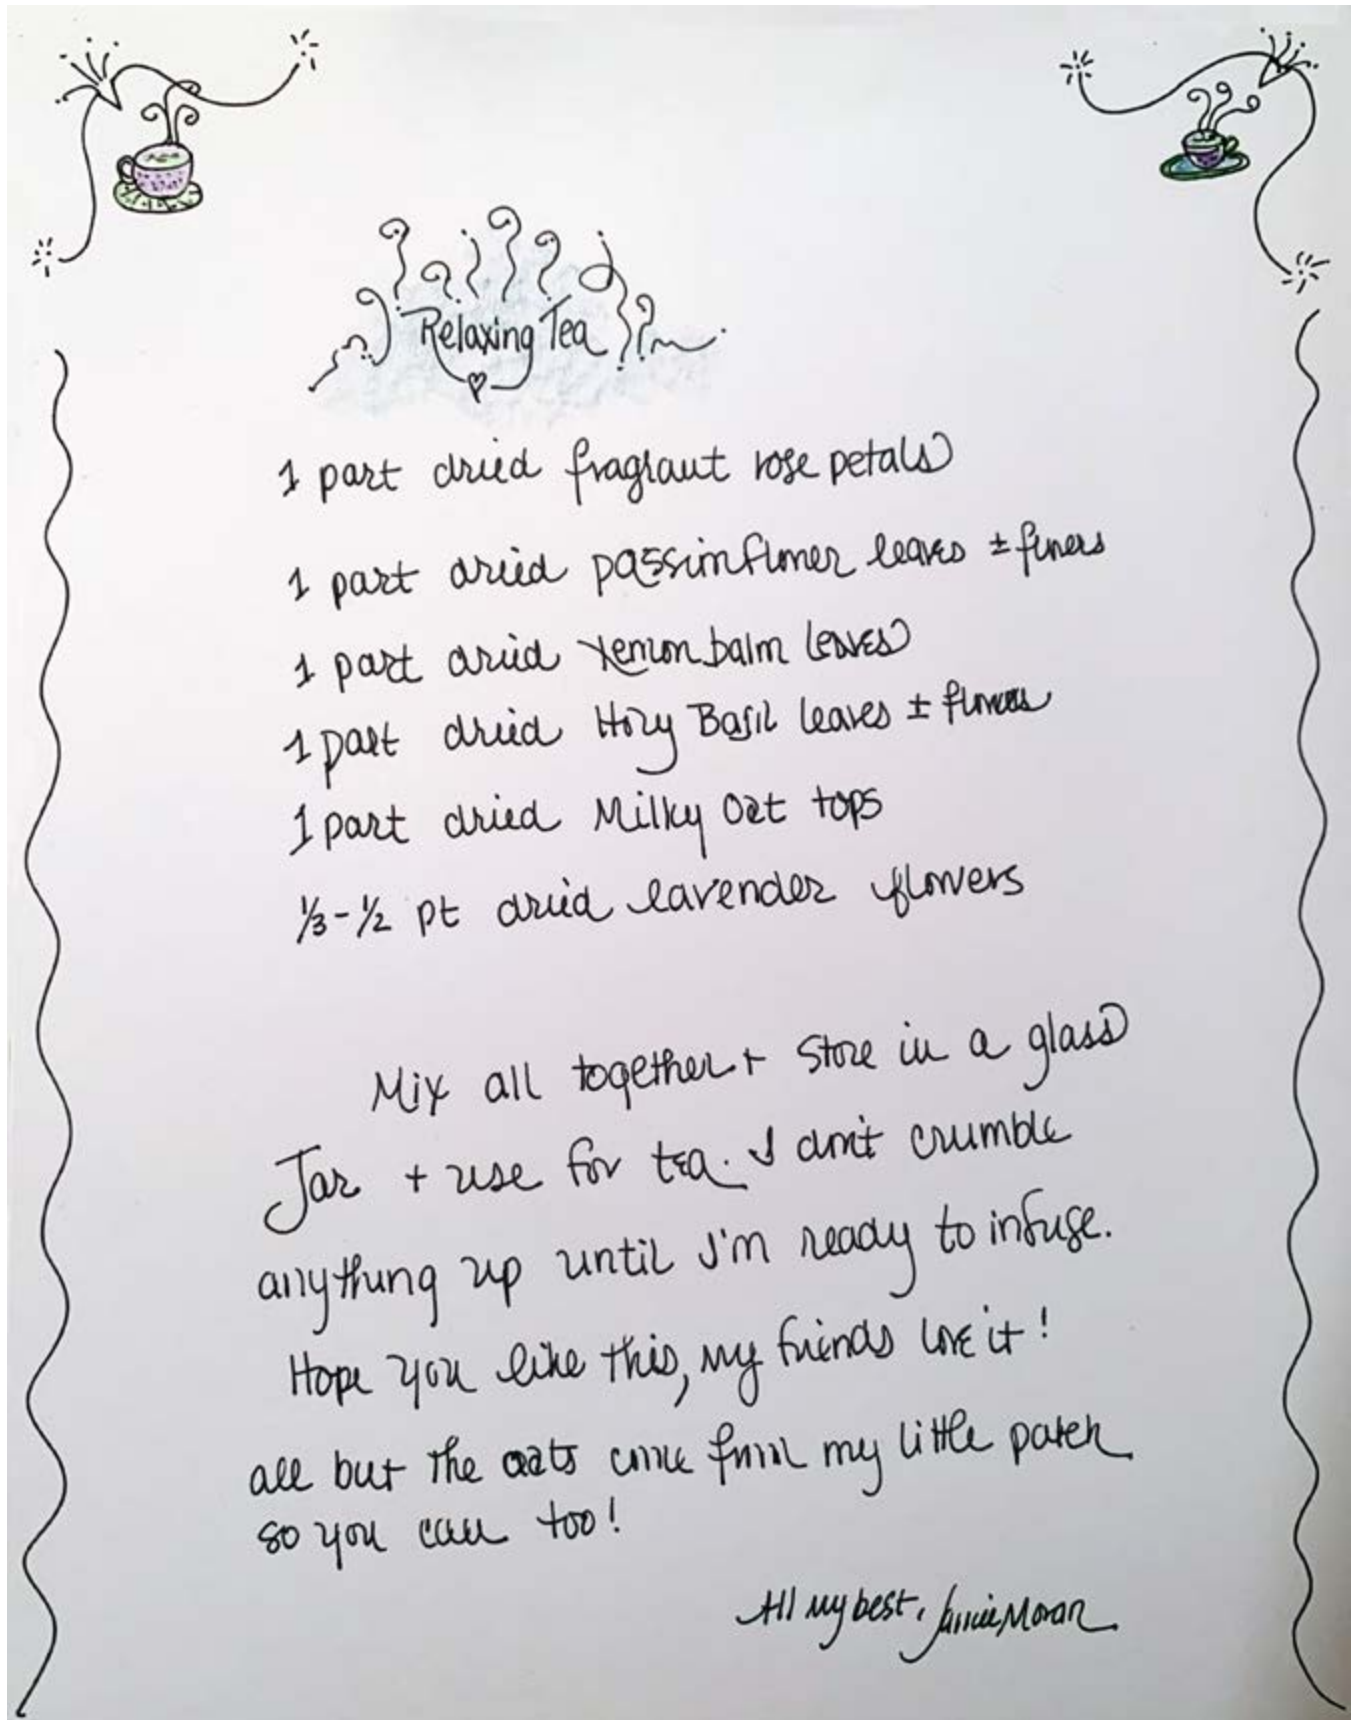 Relaxing Tea
1 part dried fragrant rose petals
1 part dried passionflower leaves ± flowers
1 part dried Lemon balm leaves
1 part dried Holy Basil leaves ± flowers
1 part dried Milky Oat tops
1/3-1/2 pt dried lavender flowers
Mix all together + store in a glass
Jar + use for tea. I don't crumble
anything up until I'm ready to infuse.
Hope you like this, my friends love it!
all but the oats come from my little patch
so you can too!
All my best, Jamie Moran